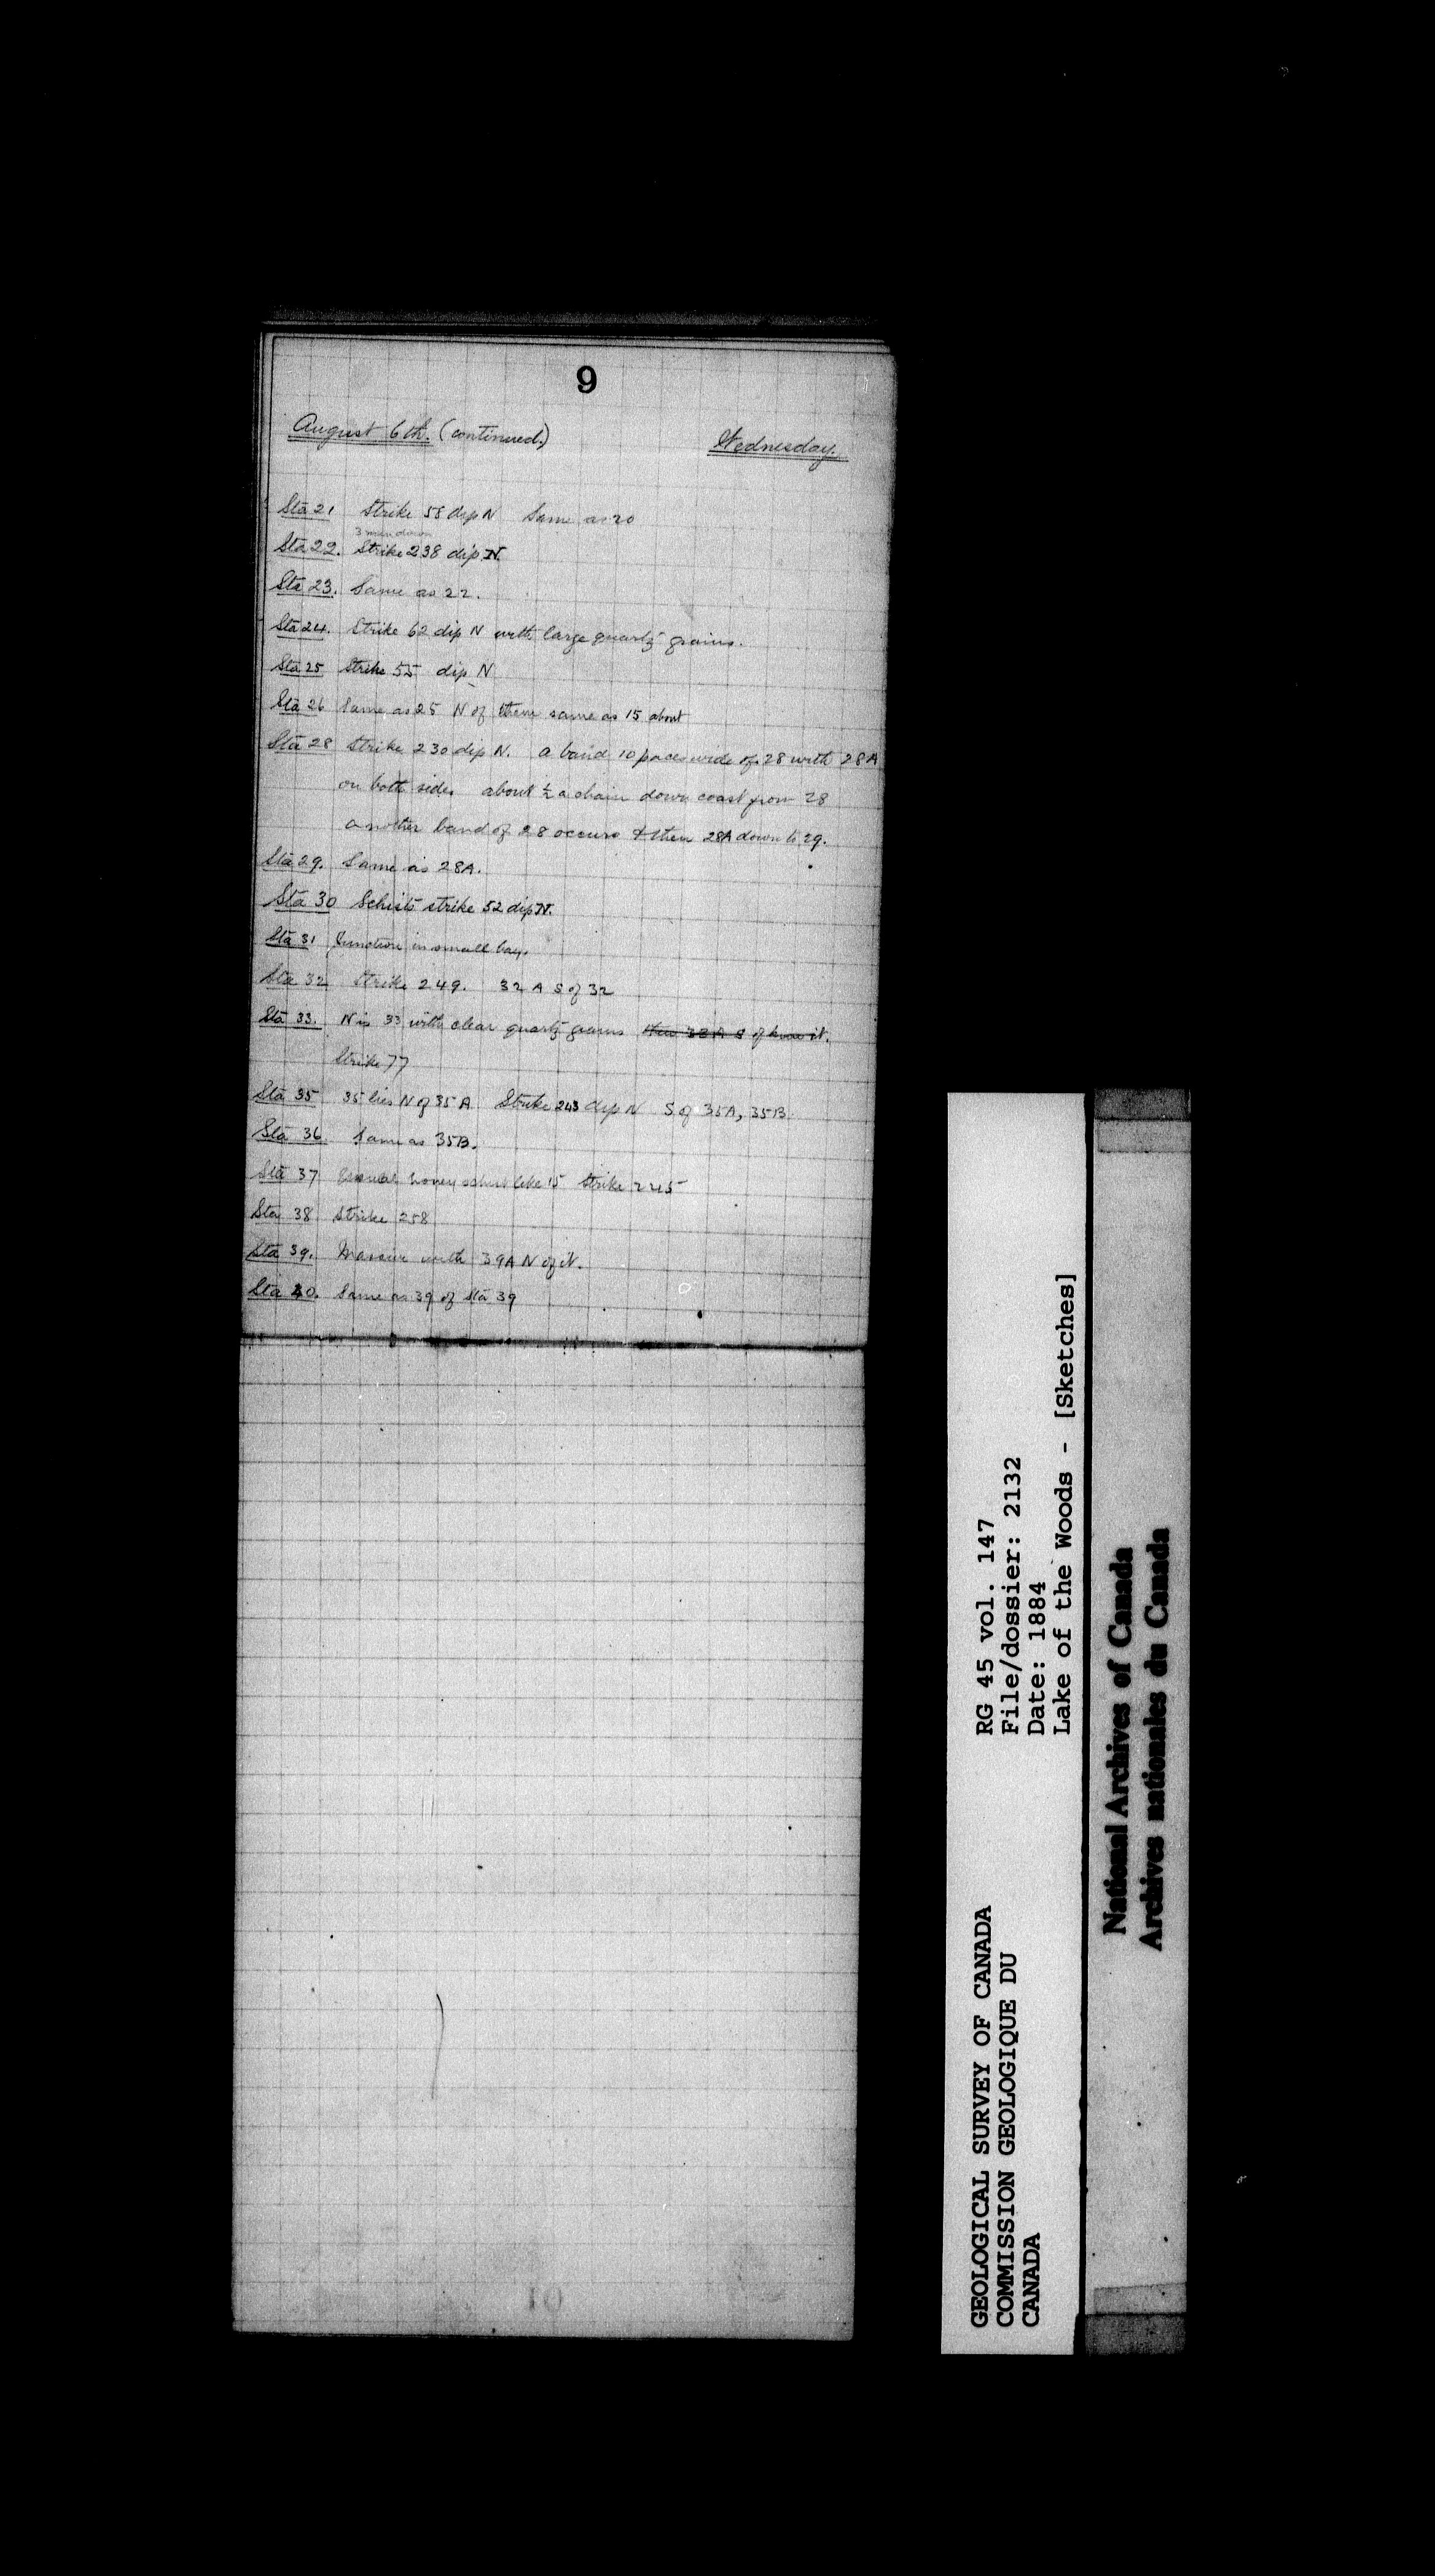 9
August 6th. (continued.) Wednesday.
Sta 21 Strike 55 dip N Same as 20
3 men down
Sta 22. Strike 238 dip N.
Sta 23. Same as 22.
Sta 24. Strike 62 dip N with large quartz grains.
Sta 25 Strike 55 dip N
Sta 26 Same as 25 N of them same as 15 about
Sta 28 Strike 230 dip N. a band 10 paces wide of 28 with 28A
on both sides about ½ a chain down coast from 28
another band of 28 occurs & then 28A down to 29.
Sta 29. Same as 28A.
Sta 30 Schists strike 52 dip N.
Sta 31 Junction in small bay.
Sta 32 Strike 249. 32 A S of 32
Sta 33. N is 33 with clear quartz grains then 33A S of it.
Strike 77
Sta 35 35 lies N of 35A Strike 243 dip N S of 35A, 35B
Sta 36 Same as 35B.
Sta 37 schist like 15 Strike 245
Sta 38 Strike 258
Sta 39. Massive with 39A N of it.
Sta 40. Same as 39 of Sta 39
GEOLOGICAL SURVEY OF CANADA
COMMISSION GEOLOGIQUE DU
CANADA
RG 45 vol. 147
File/dossier: 2132
Date: 1884
Lake of the Woods - [Sketches]
National Archives of Canada
Archives nationales du Canada